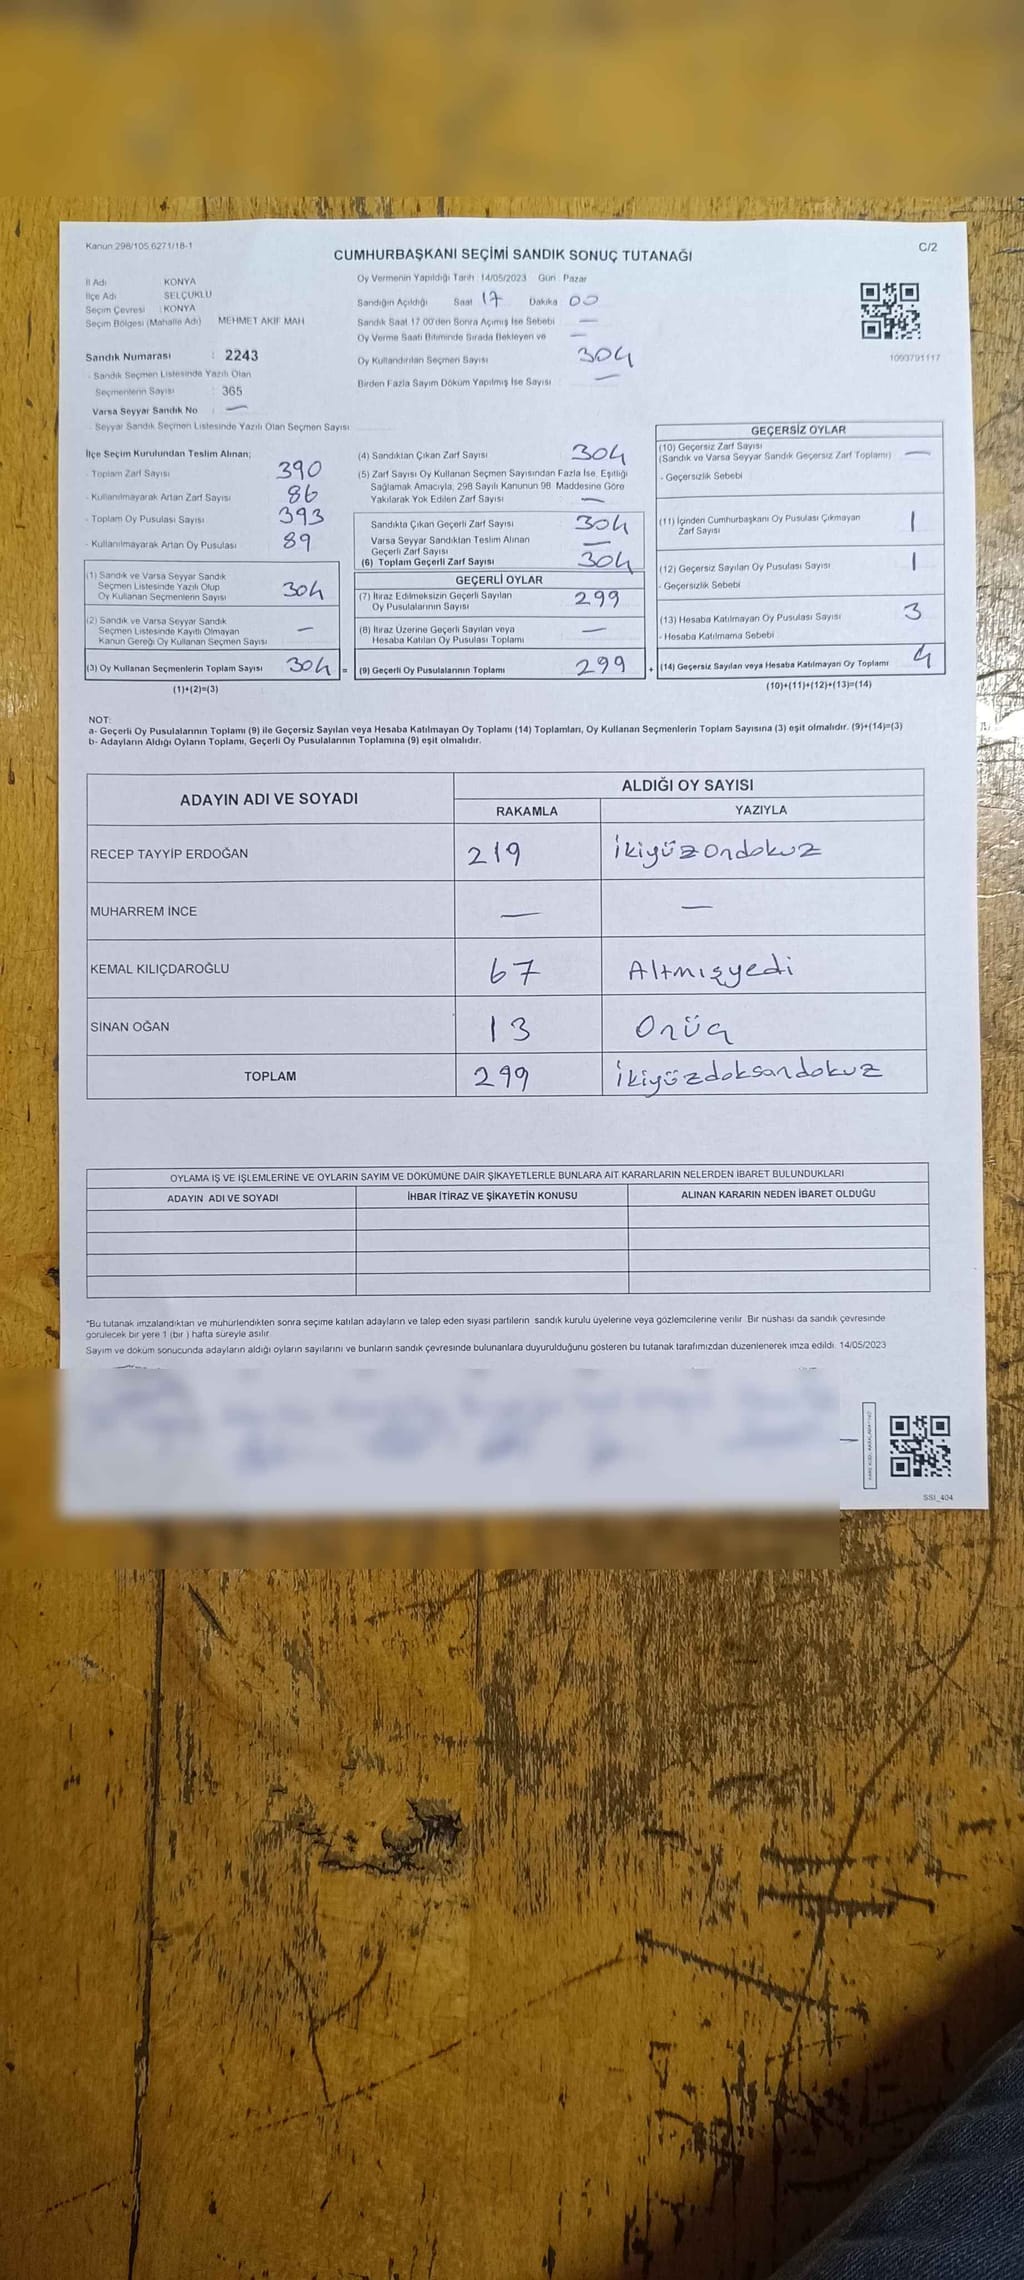 Kanun 298/105 6271/18-1
C/2
CUMHURBAŞKANI SEÇİMİ SANDIK SONUÇ TUTANAĞI
İl Adı KONYA
İlçe Adı SELÇUKLU
Seçim Çevresi : KONYA
Seçim Bölgesi (Mahalle Adı) MEHMET AKİF MAH
Sandık Numarası : 2243
- Sandık Seçmen Listesinde Yazılı Olan
Seçmenlerin Sayısı : 365
Varsa Seyyar Sandık No : —
- Seyyar Sandık Seçmen Listesinde Yazılı Olan Seçmen Sayısı
Oy Vermenin Yapıldığı Tarih : 14/05/2023 Gün : Pazar
Sandığın Açıldığı Saat 17 Dakika 00
Sandık Saat 17 00'den Sonra Açımış İse Sebebi —
Oy Verme Saati Bitiminde Sırada Bekleyen ve —
Oy Kullandırılan Seçmen Sayısı 304
Birden Fazla Sayım Döküm Yapılmış İse Sayısı —
1093791117
İlçe Seçim Kurulundan Teslim Alınan;
- Toplam Zarf Sayısı 390
- Kullanılmayarak Artan Zarf Sayısı 86
- Toplam Oy Pusulası Sayısı 393
- Kullanılmayarak Artan Oy Pusulası 89
(1) Sandık ve Varsa Seyyar Sandık
Seçmen Listesinde Yazılı Olup
Oy Kullanan Seçmenlerin Sayısı 304
(2) Sandık ve Varsa Seyyar Sandık
Seçmen Listesinde Kayıtlı Olmayan
Kanun Gereği Oy Kullanan Seçmen Sayısı —
(3) Oy Kullanan Seçmenlerin Toplam Sayısı 304 =
(1)+(2)=(3)
(4) Sandıktan Çıkan Zarf Sayısı 304
(5) Zarf Sayısı Oy Kullanan Seçmen Sayısından Fazla İse, Eşitliği
Sağlamak Amacıyla, 298 Sayılı Kanunun 98. Maddesine Göre
Yakılarak Yok Edilen Zarf Sayısı —
Sandıkta Çıkan Geçerli Zarf Sayısı 304
Varsa Seyyar Sandıktan Teslim Alınan
Geçerli Zarf Sayısı —
(6) Toplam Geçerli Zarf Sayısı 304
GEÇERLİ OYLAR
(7) İtiraz Edilmeksizin Geçerli Sayılan
Oy Pusulalarının Sayısı 299
(8) İtiraz Üzerine Geçerli Sayılan veya
Hesaba Katılan Oy Pusulası Toplamı —
(9) Geçerli Oy Pusulalarının Toplamı 299 +
GEÇERSİZ OYLAR
(10) Geçersiz Zarf Sayısı
(Sandık ve Varsa Seyyar Sandık Geçersiz Zarf Toplamı) —
- Geçersizlik Sebebi
(11) İçinden Cumhurbaşkanı Oy Pusulası Çıkmayan
Zarf Sayısı 1
(12) Geçersiz Sayılan Oy Pusulası Sayısı 1
- Geçersizlik Sebebi
(13) Hesaba Katılmayan Oy Pusulası Sayısı 3
- Hesaba Katılmama Sebebi
(14) Geçersiz Sayılan veya Hesaba Katılmayan Oy Toplamı 4
(10)+(11)+(12)+(13)=(14)
NOT:
a- Geçerli Oy Pusulalarının Toplamı (9) ile Geçersiz Sayılan veya Hesaba Katılmayan Oy Toplamı (14) Toplamları, Oy Kullanan Seçmenlerin Toplam Sayısına (3) eşit olmalıdır. (9)+(14)=(3)
b- Adayların Aldığı Oyların Toplamı, Geçerli Oy Pusulalarının Toplamına (9) eşit olmalıdır.
ADAYIN ADI VE SOYADI ALDIĞI OY SAYISI
RAKAMLA YAZIYLA
RECEP TAYYİP ERDOĞAN 219 İkiyüzondokuz
MUHARREM İNCE — —
KEMAL KILIÇDAROĞLU 67 Altmışyedi
SİNAN OĞAN 13 Onüç
TOPLAM 299 İkiyüzdoksandokuz
OYLAMA İŞ VE İŞLEMLERİNE VE OYLARIN SAYIM VE DÖKÜMÜNE DAİR ŞİKAYETLERLE BUNLARA AİT KARARLARIN NELERDEN İBARET BULUNDUKLARI
ADAYIN ADI VE SOYADI İHBAR İTİRAZ VE ŞİKAYETİN KONUSU ALINAN KARARIN NEDEN İBARET OLDUĞU
*Bu tutanak imzalandıktan ve mühürlendikten sonra seçime katılan adayların ve talep eden siyasi partilerin sandık kurulu üyelerine veya gözlemcilerine verilir. Bir nüshası da sandık çevresinde
görülecek bir yere 1 (bir ) hafta süreyle asılır
Sayım ve döküm sonucunda adayların aldığı oyların sayılarını ve bunların sandık çevresinde bulunanlara duyurulduğunu gösteren bu tutanak tarafımızdan düzenlenerek imza edildi. 14/05/2023
SSI_404